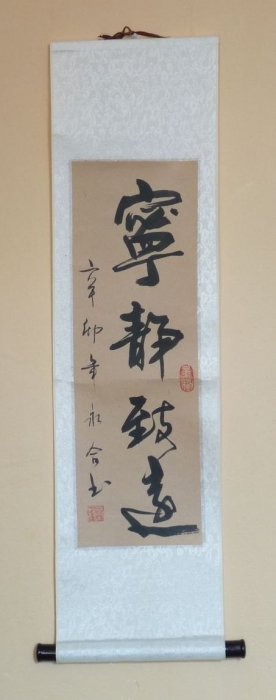 寧靜致遠
辛卯年永合书